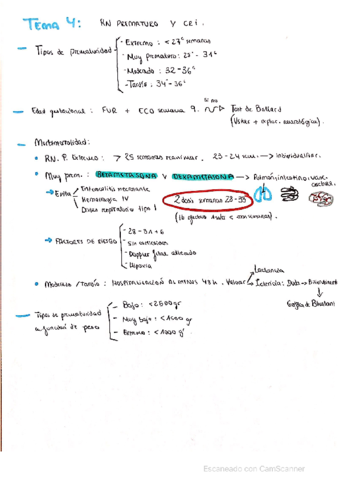 Tema 4: RN PREMATURO Y CRI.
Tipos de prematuridad
- Extremo: < 27⁶ semanas
- Muy prematuro: 28 - 31⁶
- Moderado: 32 - 33⁶
- Tardío: 34 - 36⁶
Edad gestacional: FUR + ECO semana 9. Si no Test de Ballard
(Usher + explor. neurológica)
- Morbimortalidad:
• RN. P. Extremo: > 25 semanas reanimar, 23-24 sem. → individualizar.
• Muy prem.: BETAMETASONA Y DEXAMETASONA → Pulmón, intestino, vasc. cerebral.
→ Evita
Enterocolitis necrotizante
Hemorragia IV
Distrés respiratorio tipo I
2 dosis semanas 23-35
→ FACTORES DE RIESGO
- Sin corticoides
- Doppler fetal alterado
- Hipoxia
• Moderado / Tardío: HOSPITALIZACIÓN AL MENOS 48 h. Valorar
Lactancia
Ictericia: Duda → Bilirrubinemia
- Tipos de prematuridad
en función de peso
- Bajo: < 2500 gr
- Muy bajo: < 1500 gr
- Extremo: < 1000 gr
Escaneado con CamScanner